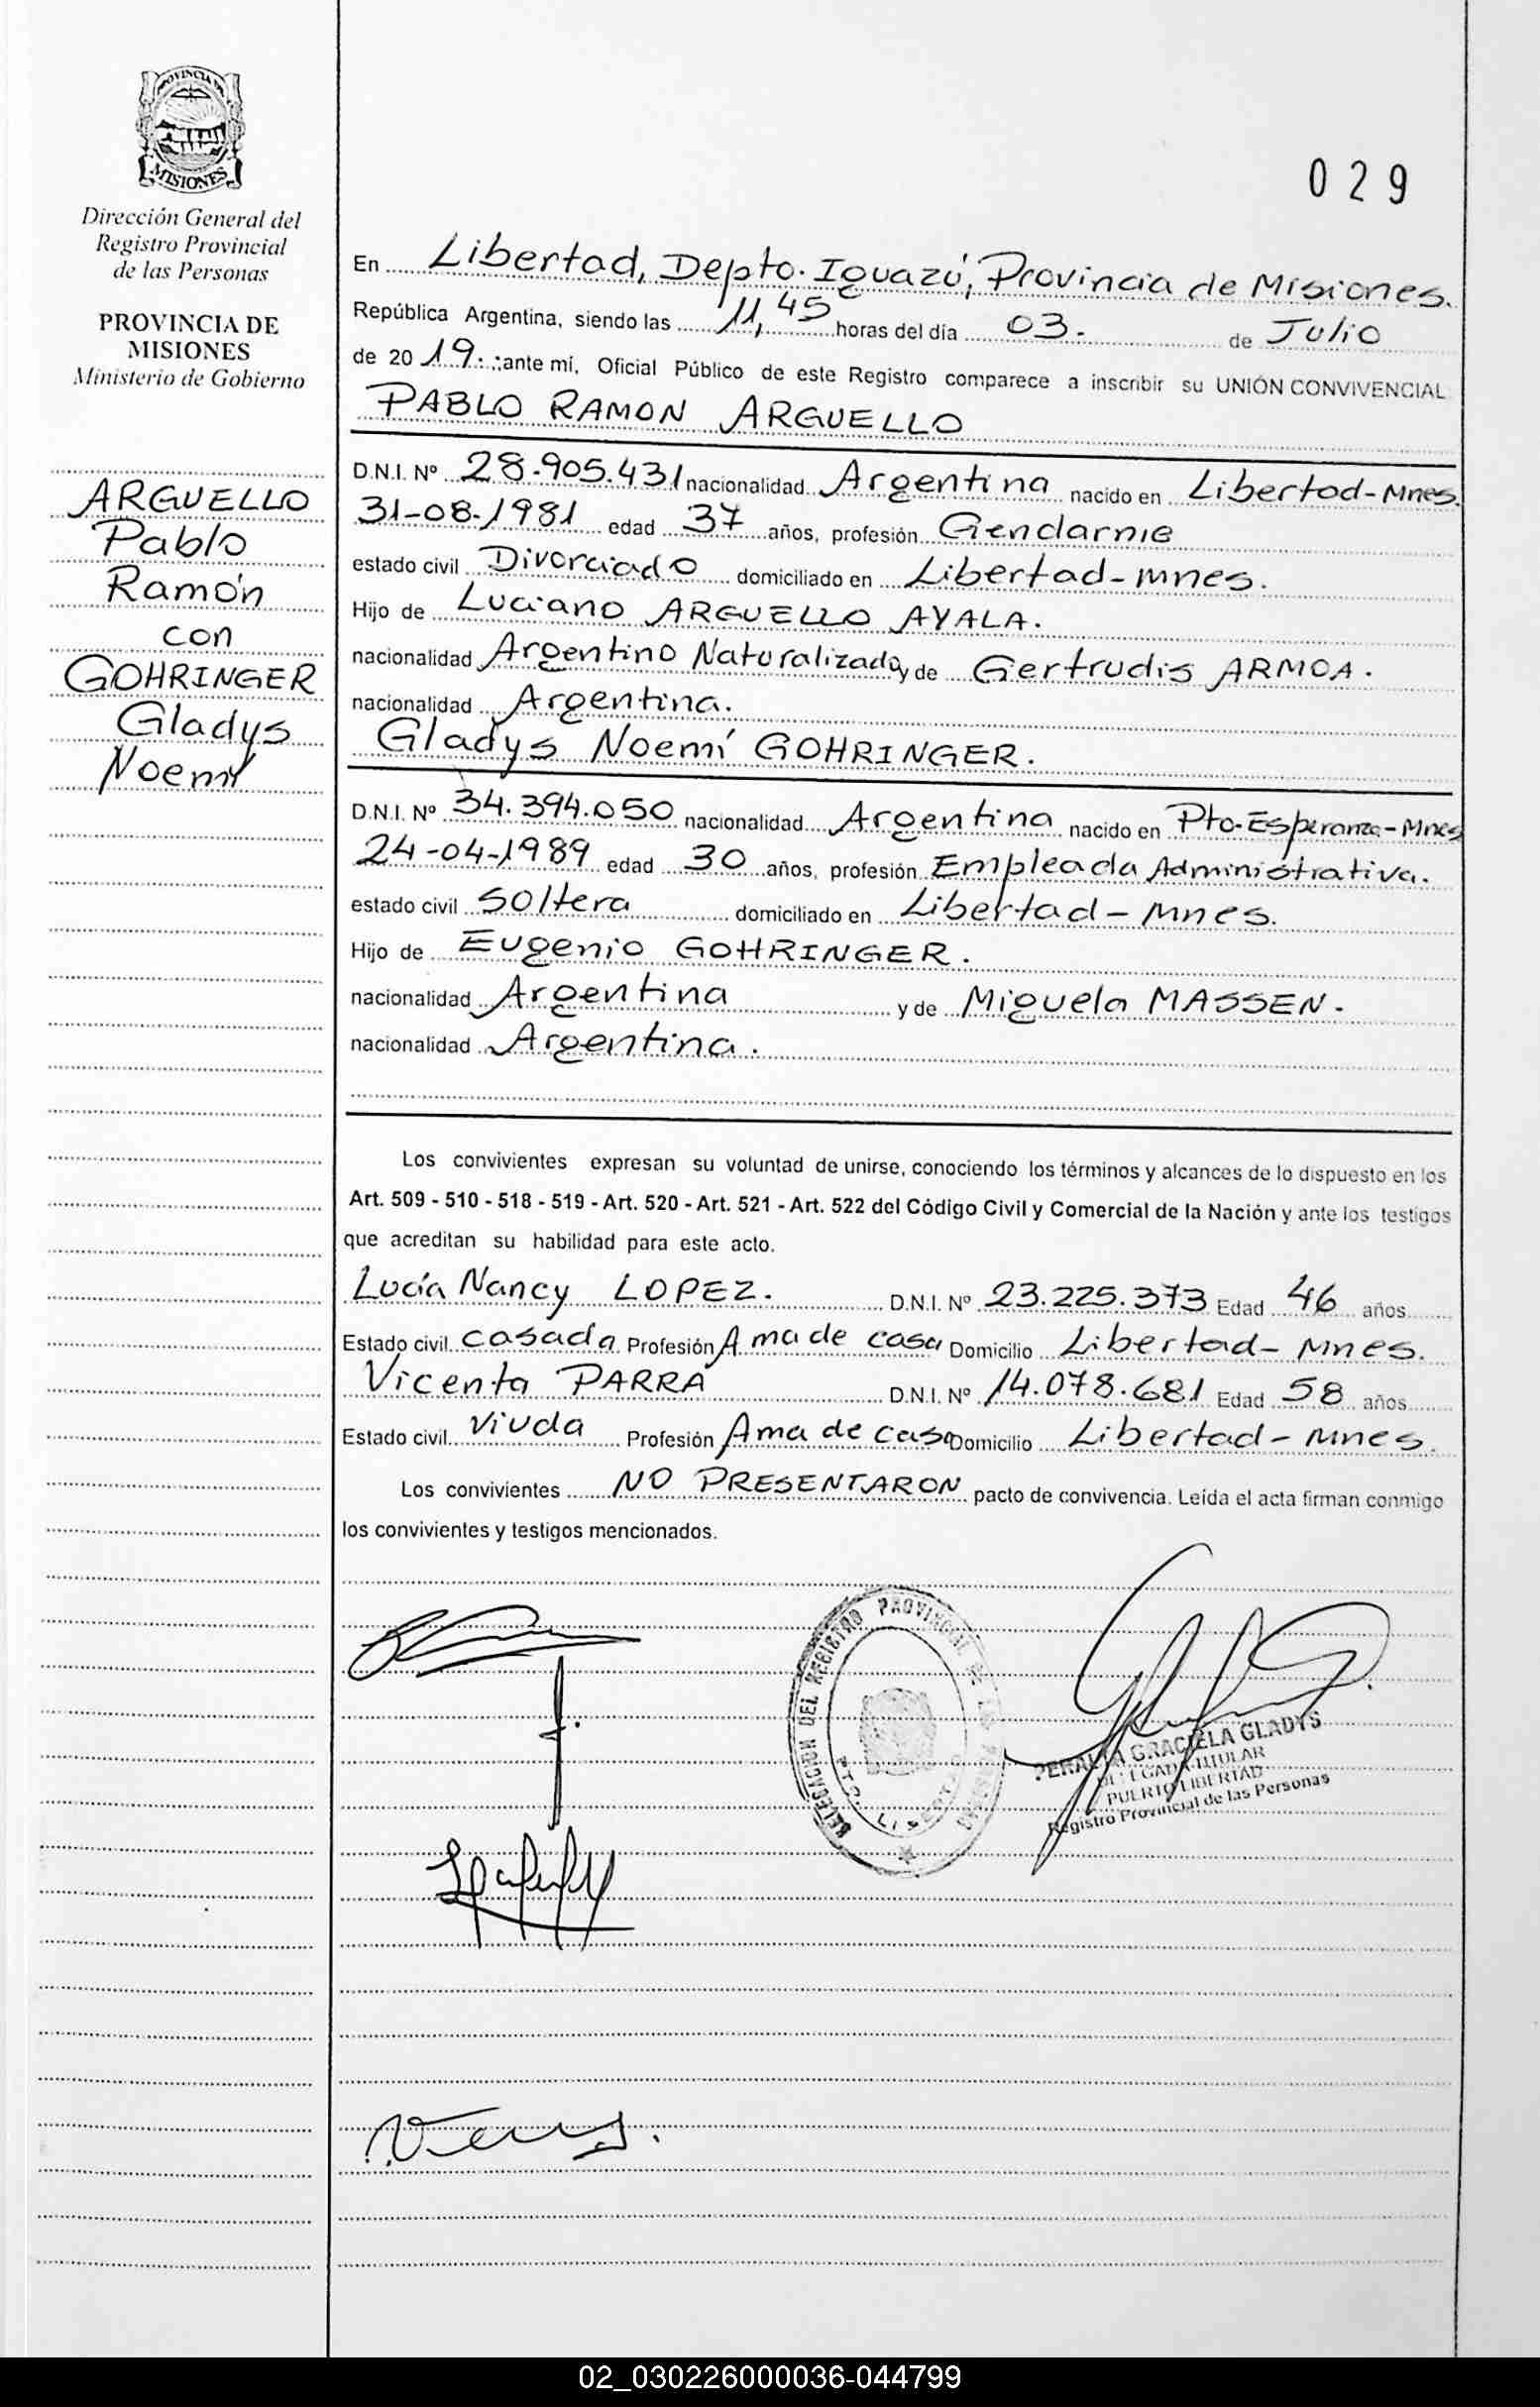 PROVINCIA DE
MISIONES
Dirección General del
Registro Provincial
de las Personas
PROVINCIA DE
MISIONES
Ministerio de Gobierno
ARGUELLO
Pablo
Ramón
con
GOHRINGER
Gladys
Noemí
029
En Libertad, Depto. Iguazú, Provincia de Misiones.
República Argentina, siendo las 11,45 horas del día 03. de Julio
de 20 19. ;ante mí, Oficial Público de este Registro comparece a inscribir su UNIÓN CONVIVENCIAL
PABLO RAMON ARGUELLO
D.N.I. Nº 28.905.431 nacionalidad Argentina nacido en Libertad-Mnes.
31-08-1981 edad 37 años, profesión Gendarme
estado civil Divorciado domiciliado en Libertad-Mnes.
Hijo de Luciano ARGUELLO AYALA.
nacionalidad Argentino Naturalizado y de Gertrudis ARMOA.
nacionalidad Argentina.
Gladys Noemí GOHRINGER.
D.N.I. Nº 34.394.050 nacionalidad Argentina nacido en Pto-Esperanza-Mnes
24-04-1989 edad 30 años, profesión Empleada Administrativa.
estado civil Soltera domiciliado en Libertad-Mnes.
Hijo de Eugenio GOHRINGER.
nacionalidad Argentina y de Miguela MASSEN.
nacionalidad Argentina.
Los convivientes expresan su voluntad de unirse, conociendo los términos y alcances de lo dispuesto en los
Art. 509 - 510 - 518 - 519 - Art. 520 - Art. 521 - Art. 522 del Código Civil y Comercial de la Nación y ante los testigos
que acreditan su habilidad para este acto.
Lucía Nancy LOPEZ. D.N.I. Nº 23.225.373 Edad 46 años
Estado civil casada Profesión Ama de casa Domicilio Libertad-Mnes.
Vicenta PARRA D.N.I. Nº 14.078.681 Edad 58 años
Estado civil viuda Profesión Ama de casa Domicilio Libertad-Mnes.
Los convivientes NO PRESENTARON pacto de convivencia. Leída el acta firman conmigo
los convivientes y testigos mencionados.
DELEGACION DEL REGISTRO PROVINCIAL DE LAS PERSONAS
PTO. LIBERTAD
PERALTA GRACIELA GLADYS
DELEGADA TITULAR
PUERTO LIBERTAD
Registro Provincial de las Personas
02_030226000036-044799